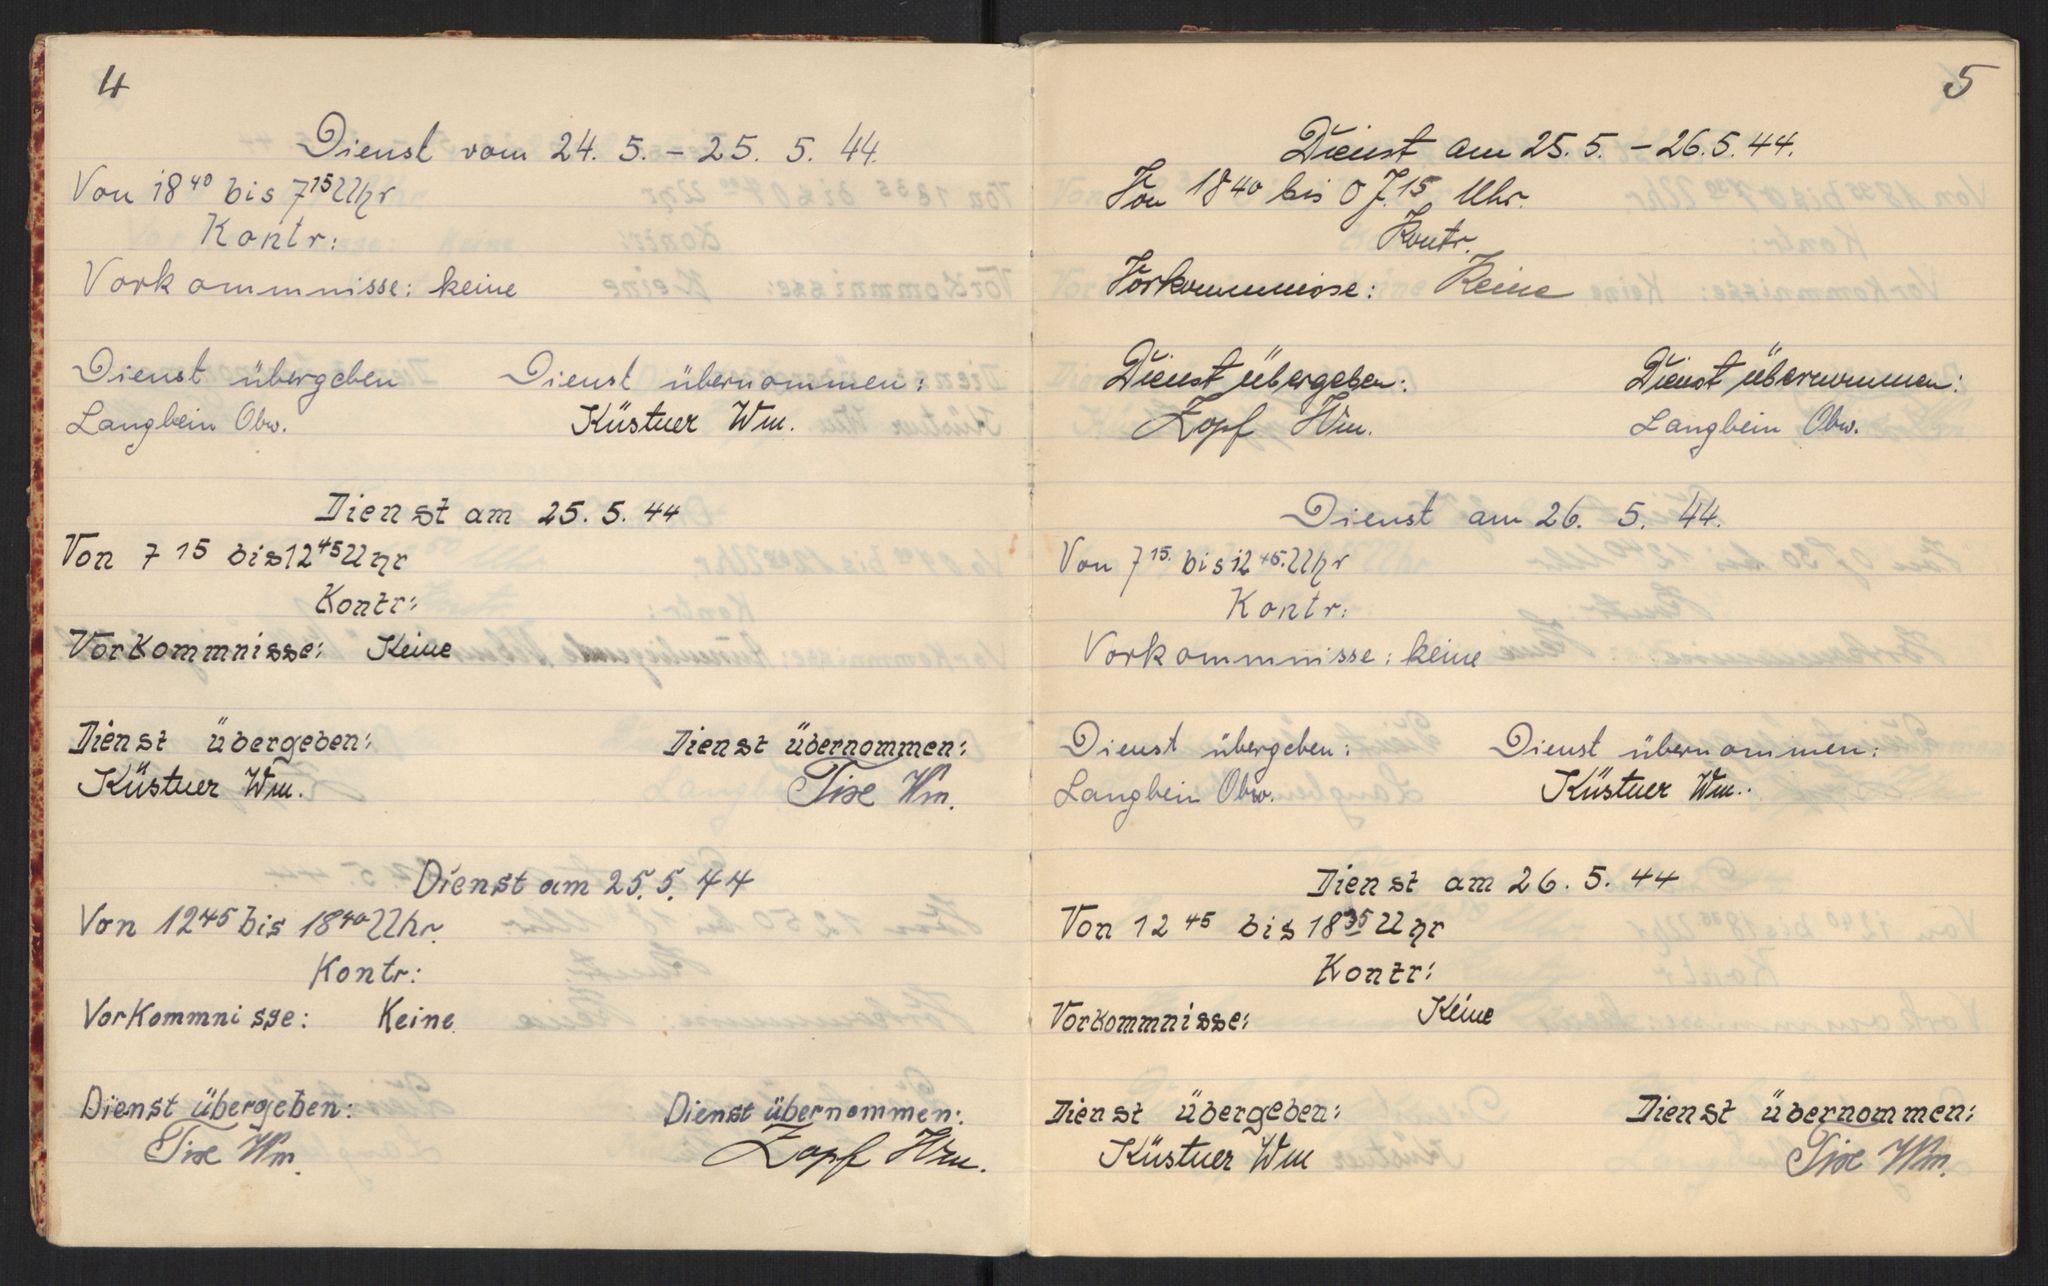 4
Dienst vom 24. 5. - 25. 5. 44.
Von 18⁴⁰ bis 7¹⁵ Uhr
Kontr:
Vorkommnisse: keine
Dienst übergeben Dienst übernommen:
Langbein Obw. Küstner Wm.
Dienst am 25. 5. 44
Von 7 15 bis 12⁴⁵ Uhr
Kontr:
Vorkommnisse: Keine
Dienst übergeben: Dienst übernommen:
Küstner Wm. Tixe Wm.
Dienst am 25. 5. 44
Von 12⁴⁵ bis 18⁴⁰ Uhr.
Kontr:
Vorkommnisse: Keine.
Dienst übergeben: Dienst übernommen:
Tixe Wm. Zopf Wm.
5
Dienst am 25. 5. - 26. 5. 44.
Von 18⁴⁰ bis 07.¹⁵ Uhr.
Kontr.
Vorkommnisse: Keine
Dienst übergeben: Dienst übernommen:
Zopf Wm. Langbein Obw.
Dienst am 26. 5. 44.
Von 7¹⁵· bis 12⁴⁵· Uhr
Kontr:
Vorkommnisse: keine
Dienst übergeben: Dienst übernommen:
Langbein Obw. Küstner Wm.
Dienst am 26. 5. 44
Von 12⁴⁵ bis 18³⁵ Uhr
Kontr:
Vorkommnisse: Keine
Dienst übergeben: Dienst übernommen:
Küstner Wm Tixe Wm.